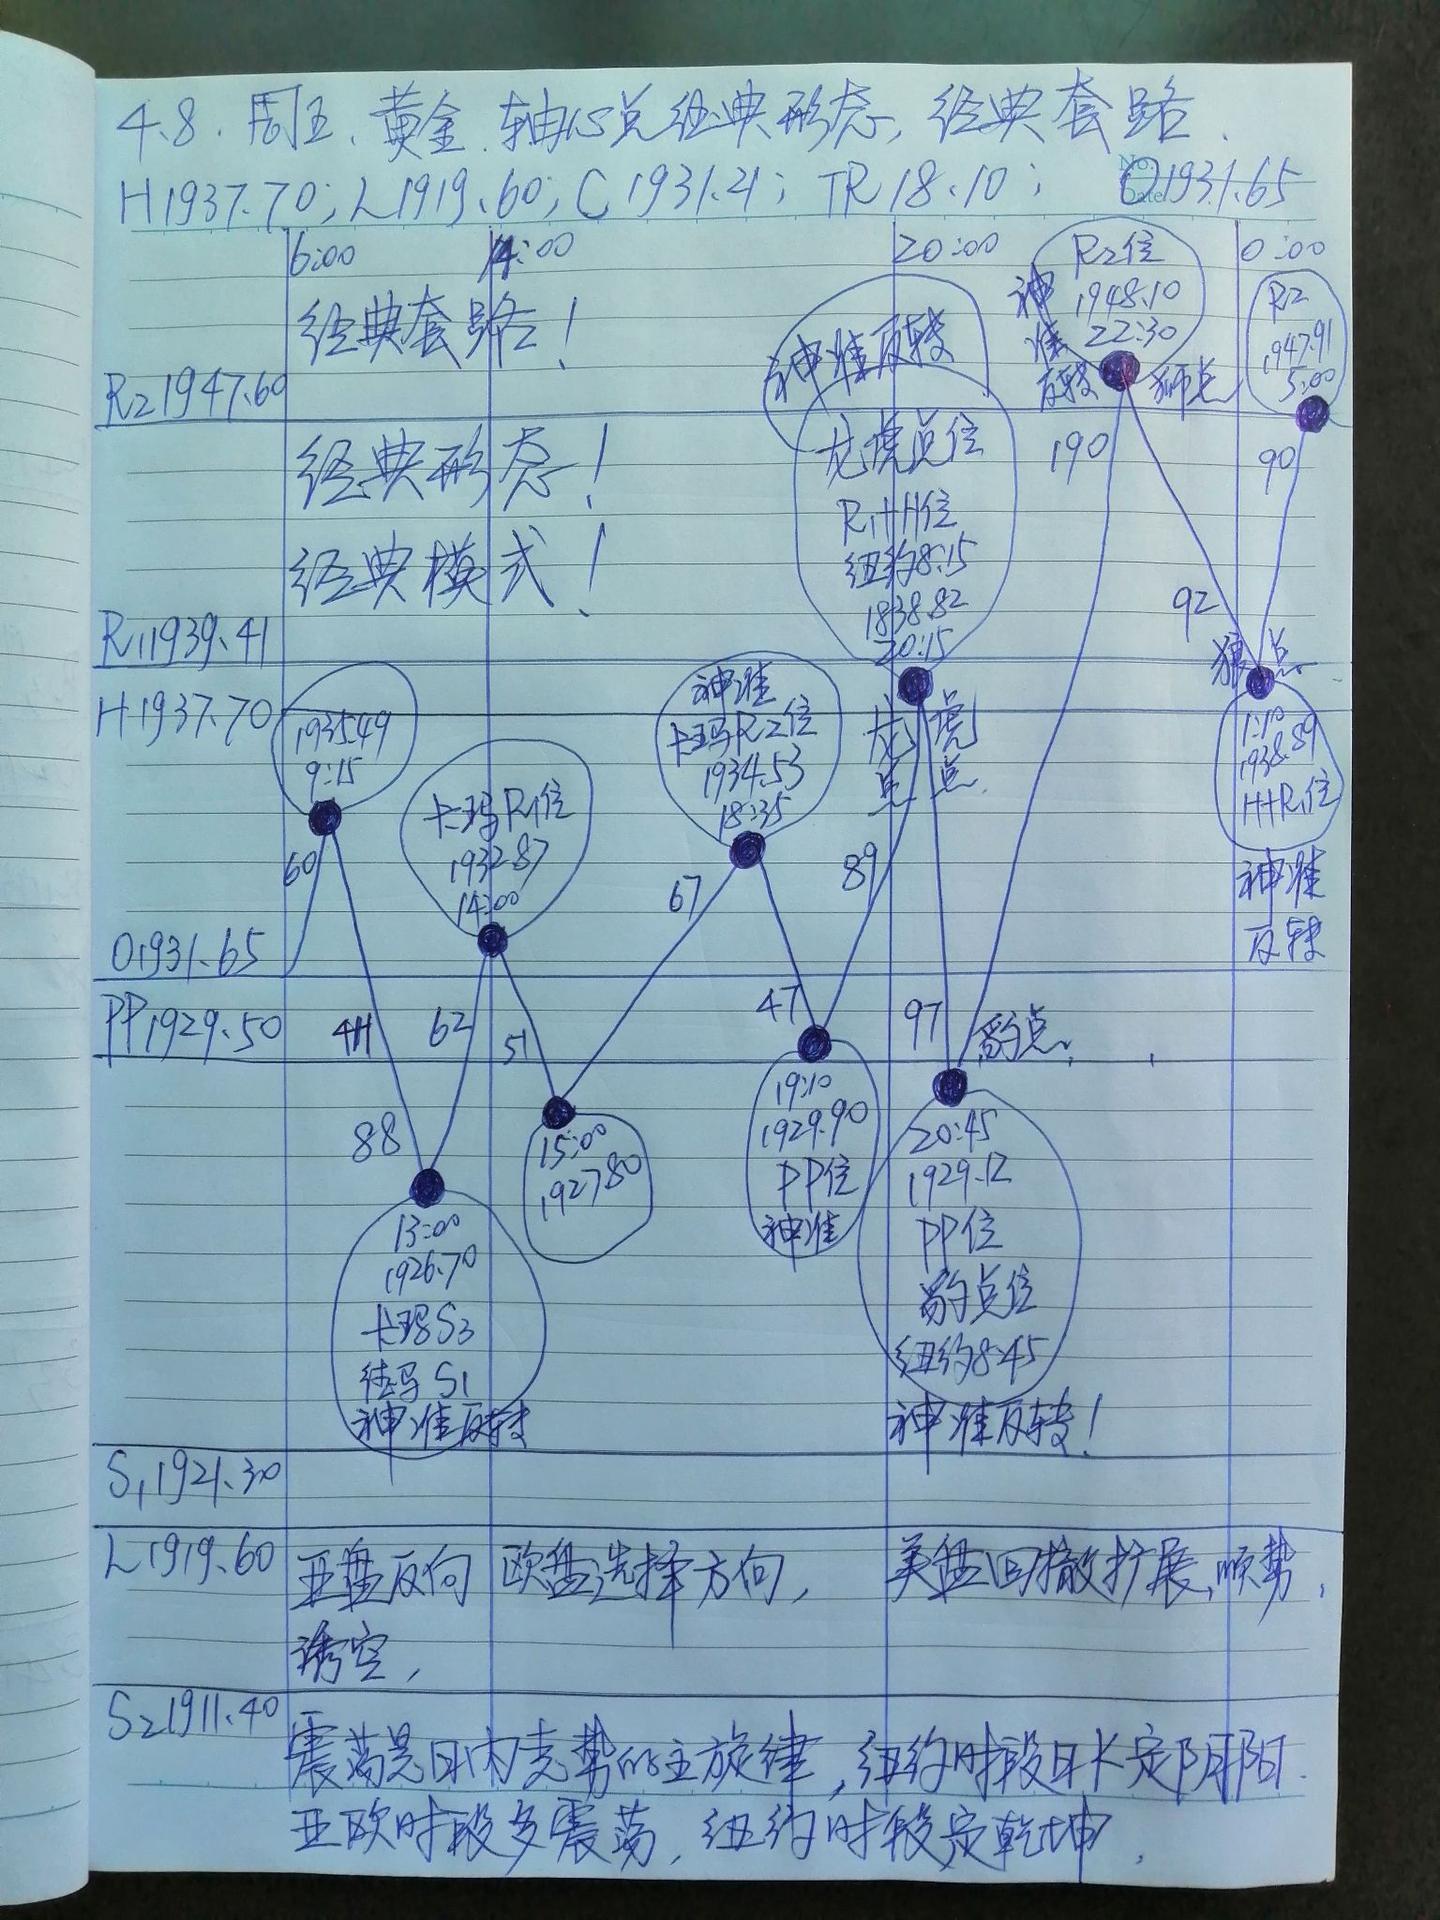 4.8. 周五. 黄金. 轴心点经典形态, 经典套路.
H1937.70; L1919.60; C1931.21; TR18.10; O1931.65
No.
Date
6:00
14:00
20:00
0:00
经典套路!
经典形态!
经典模式!
R2 1947.60
R1 1939.41
H1937.70
O1931.65
PP1929.50
S1 1921.30
L1919.60
S2 1911.40
1935.49
9:15
60
4H
88
13:00
1926.70
卡玛S3
神准反转
62
卡玛R1位
1932.87
14:00
51
15:00
1927.80
67
神准
卡玛R2位
1934.53
18:35
47
19:10
1929.90
PP位
神准
89
神准反转
龙虎点位
R1+H位
纽约8:15
1838.82
20:15
龙点
虎点
97
豹点
20:45
1929.12
PP位
豹点位
纽约8:45
神准反转!
190
R2位
1948.10
22:30
神准反转
狮点
92
狼点
1:10
1938.89
H+R1位
神准
反转
90
R2
1947.91
5:00
亚盘反向
诱空,
欧盘选择方向,
美盘回撤扩展,顺势,
震荡是日内走势的主旋律,纽约时段日K定阴阳.
亚欧时段多震荡,纽约时段定乾坤,